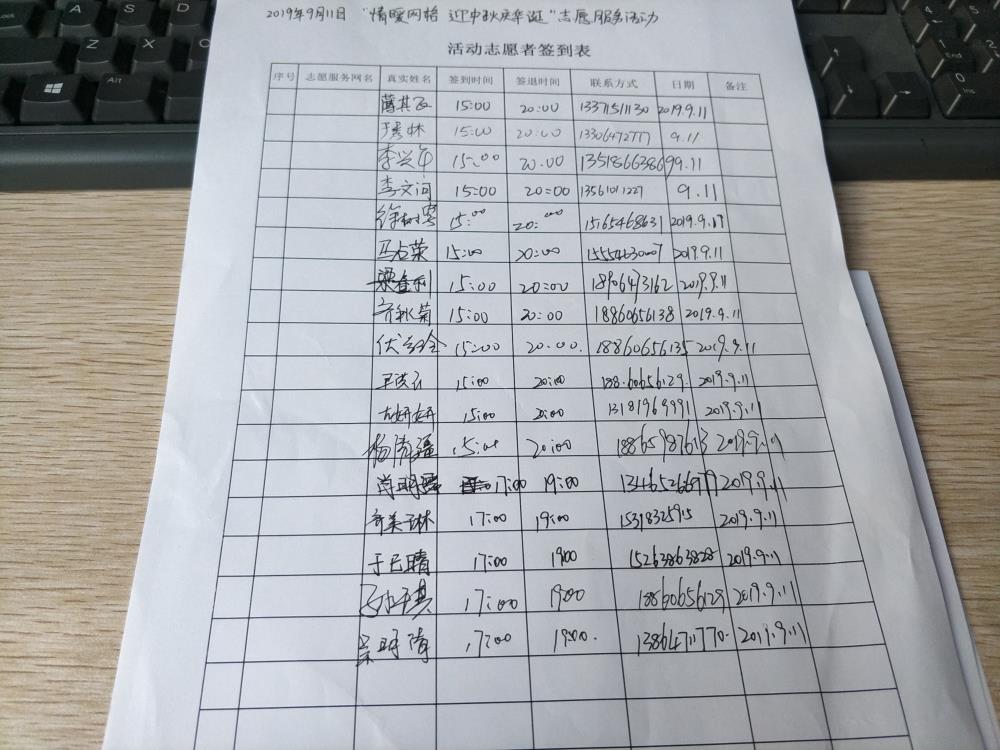 2019年9月11日 "情暖网格 迎中秋庆华诞"志愿服务活动
活动志愿者签到表
序号 志愿服务网名 真实姓名 签到时间 签退时间 联系方式 日期 备注
15:00 20:00 13371511130 2019.9.11
林 15:00 20:00 13306472777 9.11
李兴年 15:00 20:00 13518663869 9.11
李文河 15:00 20:00 13561011227 9.11
徐 15:00 20:00 15165468631 2019.9.17
马占荣 15:00 20:00 15554630007 2019.9.11
梁 利 15:00 20:00 18906473162 2019.9.11
齐秋菊 15:00 20:00 18860656138 2019.9.11
伏 全 15:00 20:00. 18860656135 2019.9.11
王 15:00 20:00 188.60656129 2019.9.11
左妍妍 15:00 20:00 13181969991 2019.9.11
杨 强 15:00 20:00 18865987613 2019.9.11
肖明 17:00 19:00 13465266979 2019.9.11
齐美琳 17:00 19:00 15318325915 2019.9.11
于 晴 17:00 1900 15263863828 2019.9.11
17:00 1900 18860656129 2019.9.11
17:00 1900. 13864711770. 2019.9.11
A S D
Z X
Alt